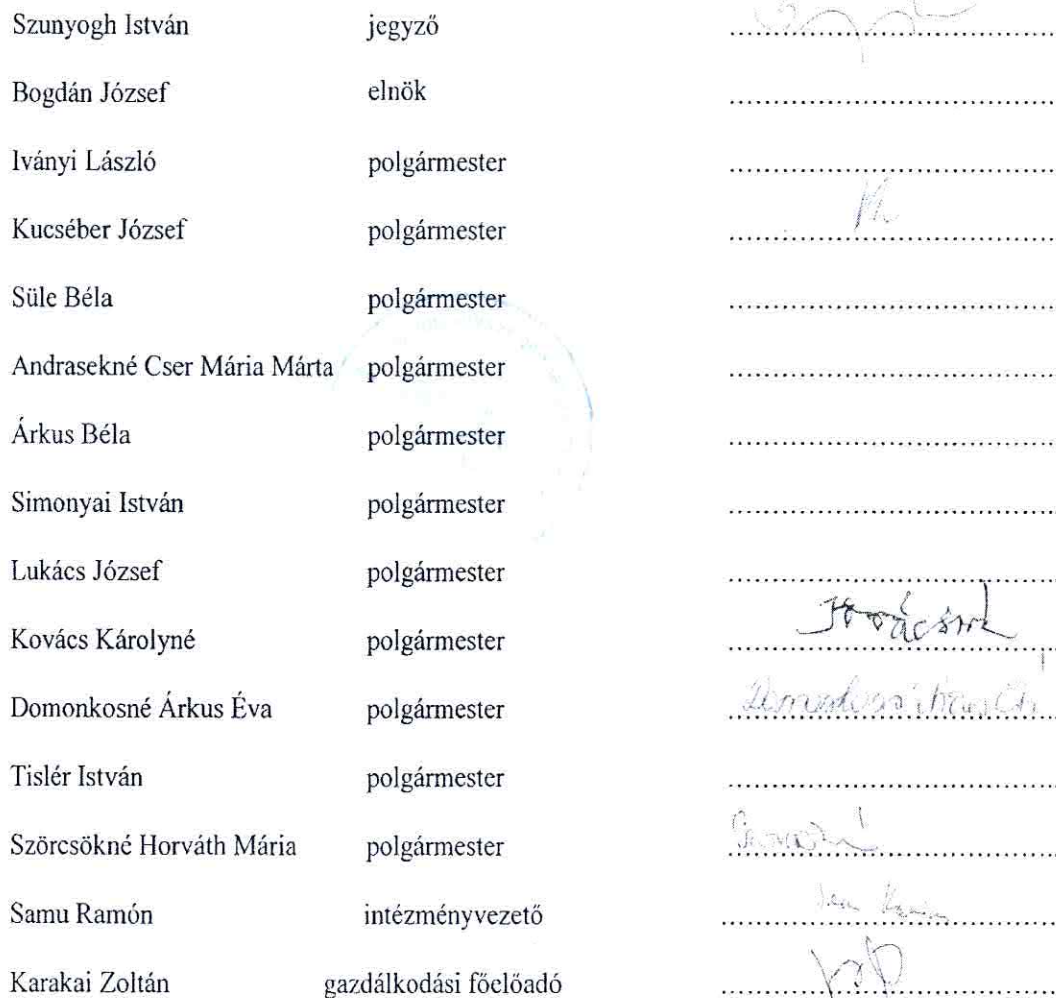 Szunyogh István jegyző ..............................
Bogdán József elnök ..............................
Iványi László polgármester ..............................
Kucséber József polgármester ..............................
Süle Béla polgármester ..............................
Andrasekné Cser Mária Márta polgármester ..............................
Árkus Béla polgármester ..............................
Simonyai István polgármester ..............................
Lukács József polgármester ..............................
Kovács Károlyné polgármester ..............................
Domonkosné Árkus Éva polgármester ..............................
Tislér István polgármester ..............................
Szörcsökné Horváth Mária polgármester ..............................
Samu Ramón intézményvezető ..............................
Karakai Zoltán gazdálkodási főelőadó ..............................